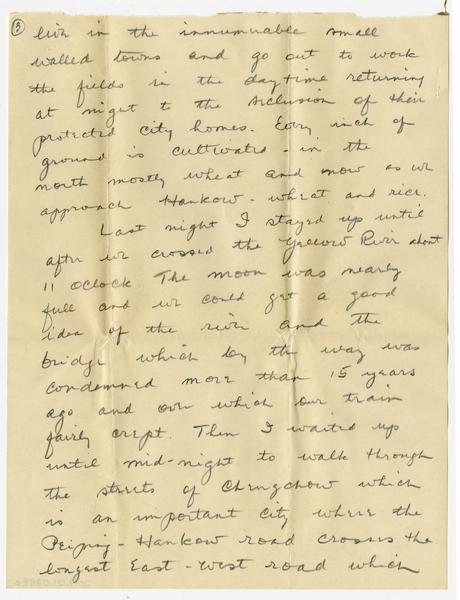 3
live in the innumerable small
walled towns and go out to work
the fields in the daytime returning
at night to the seclusion of their
protected city homes. Every inch of
ground is cultivated - in the
north mostly wheat and now as we
approach Hankow - wheat and rice.
Last night I stayed up until
after we crossed the Yellow River about
11 oclock. The moon was nearly
full and we could get a good
idea of the river and the
bridge which by the way was
condemned more than 15 years
ago and over which our train
fairly crept. Then I waited up
until mid-night to walk through
the streets of Chengchow which
is an important city where the
Peiping - Hankow road crosses the
longest East-West road which